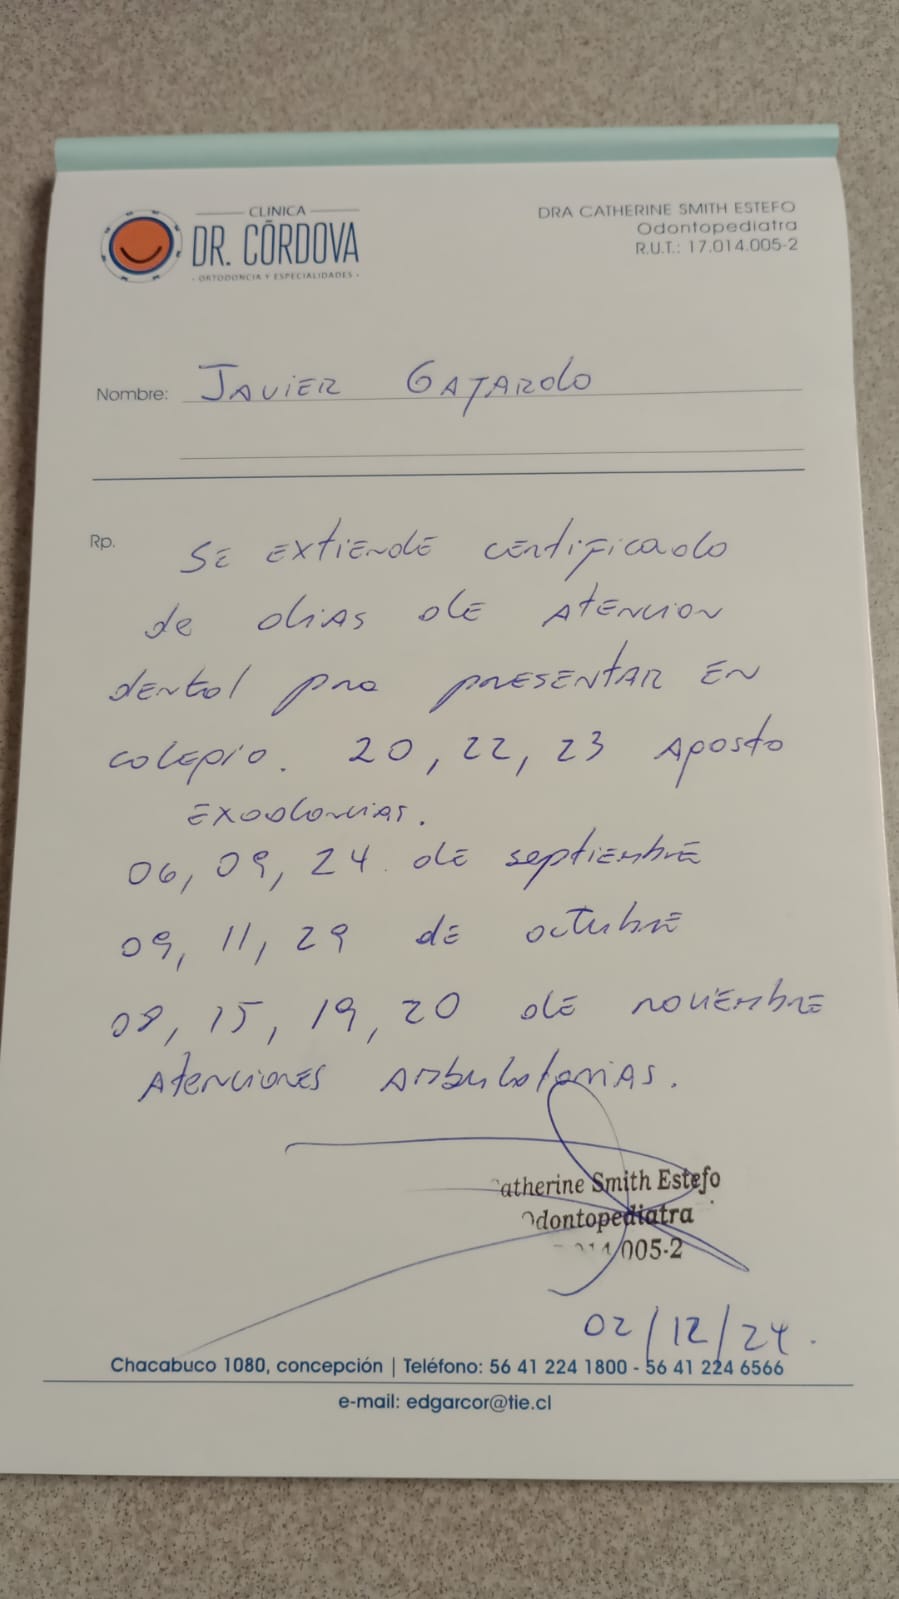 CLINICA
DR. CÓRDOVA
· ORTODONCIA Y ESPECIALIDADES ·
DRA CATHERINE SMITH ESTEFO
Odontopediatra
R.U.T.: 17.014.005-2
Nombre: JAVIER GAJARDO
Rp. SE EXTIENDE CERTIFICADO
de DIAS DE ATENCION
DENTAL PRA PRESENTAR EN
COLEGIO. 20, 22, 23 AGOSTO
EXODONCIAS.
06, 09, 24 de SEPTIEMBRE
09, 11, 29 de OCTUBRE
08, 15, 19, 20 DE NOVIEMBRE
ATENCIONES AMBULATORIAS.
atherine Smith Estefo
dontopediatra
014.005-2
02/12/24.
Chacabuco 1080, concepción | Teléfono: 56 41 224 1800 - 56 41 224 6566
e-mail: edgarcor@tie.cl